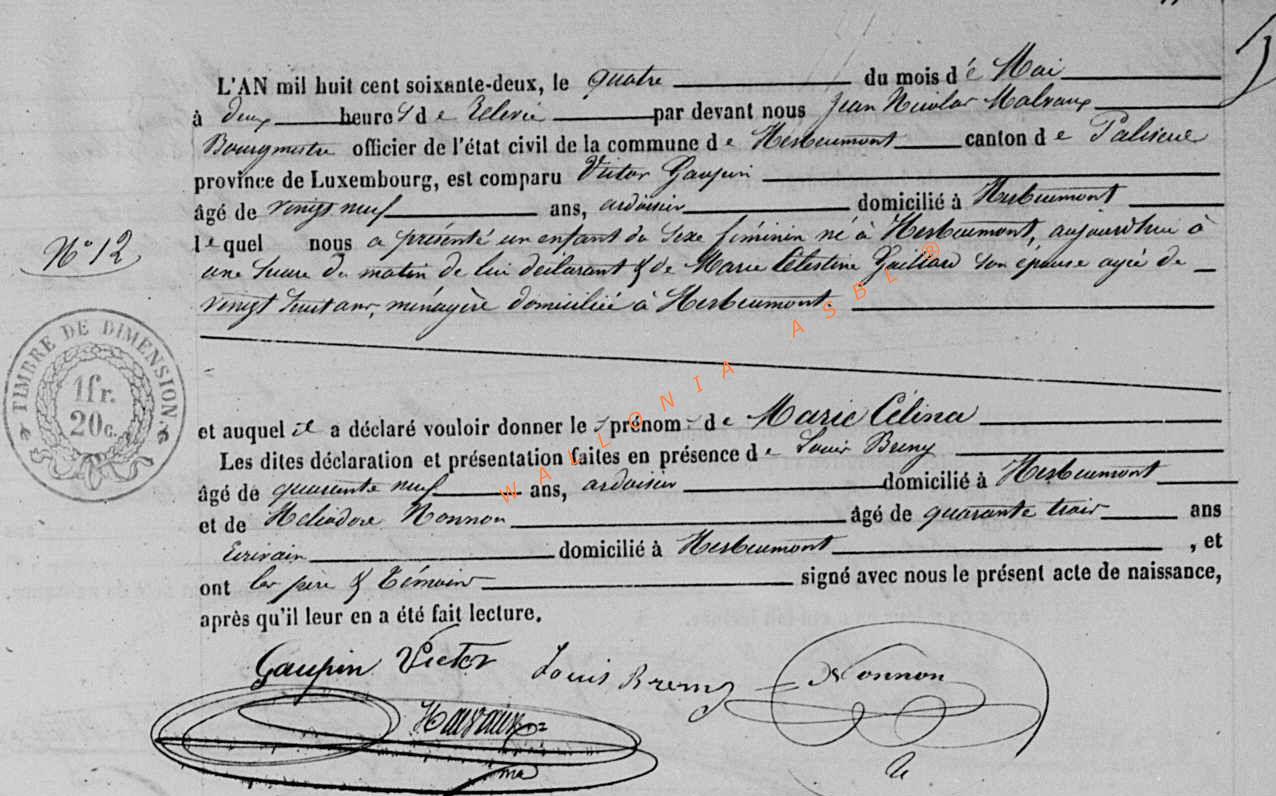 L'AN mil huit cent soixante-deux, le quatre du mois dé Mai
à deux heures de Relevée par devant nous Jean Nicolas Malvaux
Bourgmestre officier de l'état civil de la commune de Herbeumont canton de Paliseul
province de Luxembourg, est comparu Victor Gaupin
âgé de vingt neuf ans, ardoisier domicilié à Herbeumont
lequel nous a présenté un enfant du sexe féminin né à Herbeumont, aujourd'hui à
une heure du matin de lui déclarant & de Marie Célestine Gaillard son épouse agée de
vingt huit ans, ménagère domiciliée à Herbeumont.
N° 12
TIMBRE DE DIMENSION
1fr.
20c.
et auquel il a déclaré vouloir donner les prénoms de Marie Célina
Les dites déclaration et présentation faites en présence de Louis Bremy
âgé de quarante neuf ans, ardoisier domicilié à Herbeumont
et de Héliodore Nonnon âgé de quarante trois ans
Ecrivain domicilié à Herbeumont, et
ont les père & témoins signé avec nous le présent acte de naissance,
après qu'il leur en a été fait lecture.
Gaupin Victor Louis Bremy Nonnon
WALLONIA ASBL ®